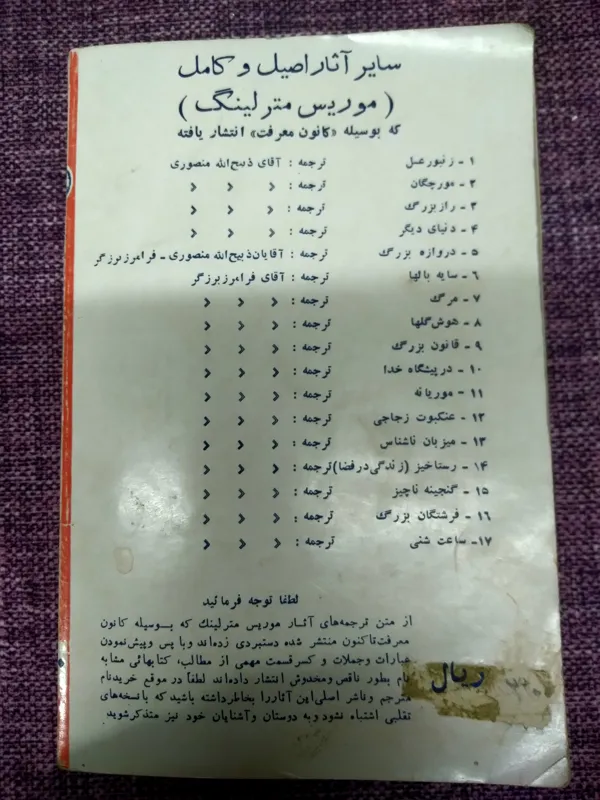 سایر آثار اصیل و کامل
( موریس مترلینگ )
که بوسیله «کانون معرفت» انتشار یافته
۱ - زنبورعسل ترجمه : آقای ذبیح‌الله منصوری
۲ - مورچگان ترجمه : » » »
۳ - رازبزرگ ترجمه : » » »
۴ - دنیای دیگر ترجمه : » » »
۵ - دروازه بزرگ ترجمه : آقایان‌ذبیح‌الله منصوری - فرامرزبرزگر
۶ - سایه بالها ترجمه : آقای فرامرزبرزگر
۷ - مرگ ترجمه : » » »
۸ - هوش گلها ترجمه : » » »
۹ - قانون بزرگ ترجمه : » » »
۱۰ - درپیشگاه خدا ترجمه : » » »
۱۱ - موریانه ترجمه : » » »
۱۲ - عنکبوت زجاجی ترجمه : » » »
۱۳ - میزبان ناشناس ترجمه : » » »
۱۴ - رستاخیز (زندگی‌درفضا) ترجمه : » » »
۱۵ - گنجینه ناچیز ترجمه : » » »
۱۶ - فرشتگان بزرگ ترجمه : » » »
۱۷- ساعت شنی ترجمه : » » »
لطفا توجه فرمائید
از متن ترجمه‌های آثار موریس مترلینك که بوسیله کانون
معرفت‌تاکنون منتشر شده دستبردی زده‌اند وبا پس وپیش‌نمودن
عبارات وجملات و کسرقسمت مهمی از مطالب، کتابهائی مشابه
نام بطور ناقص ومخدوش انتشار داده‌اند لطفاً در موقع خریدنام
مترجم وناشر اصلی‌این آثاررا بخاطرداشته باشید که بانسخه‌های
تقلبی اشتباه نشود وبه دوستان وآشنایان خود نیز متذکرشوید
ریال